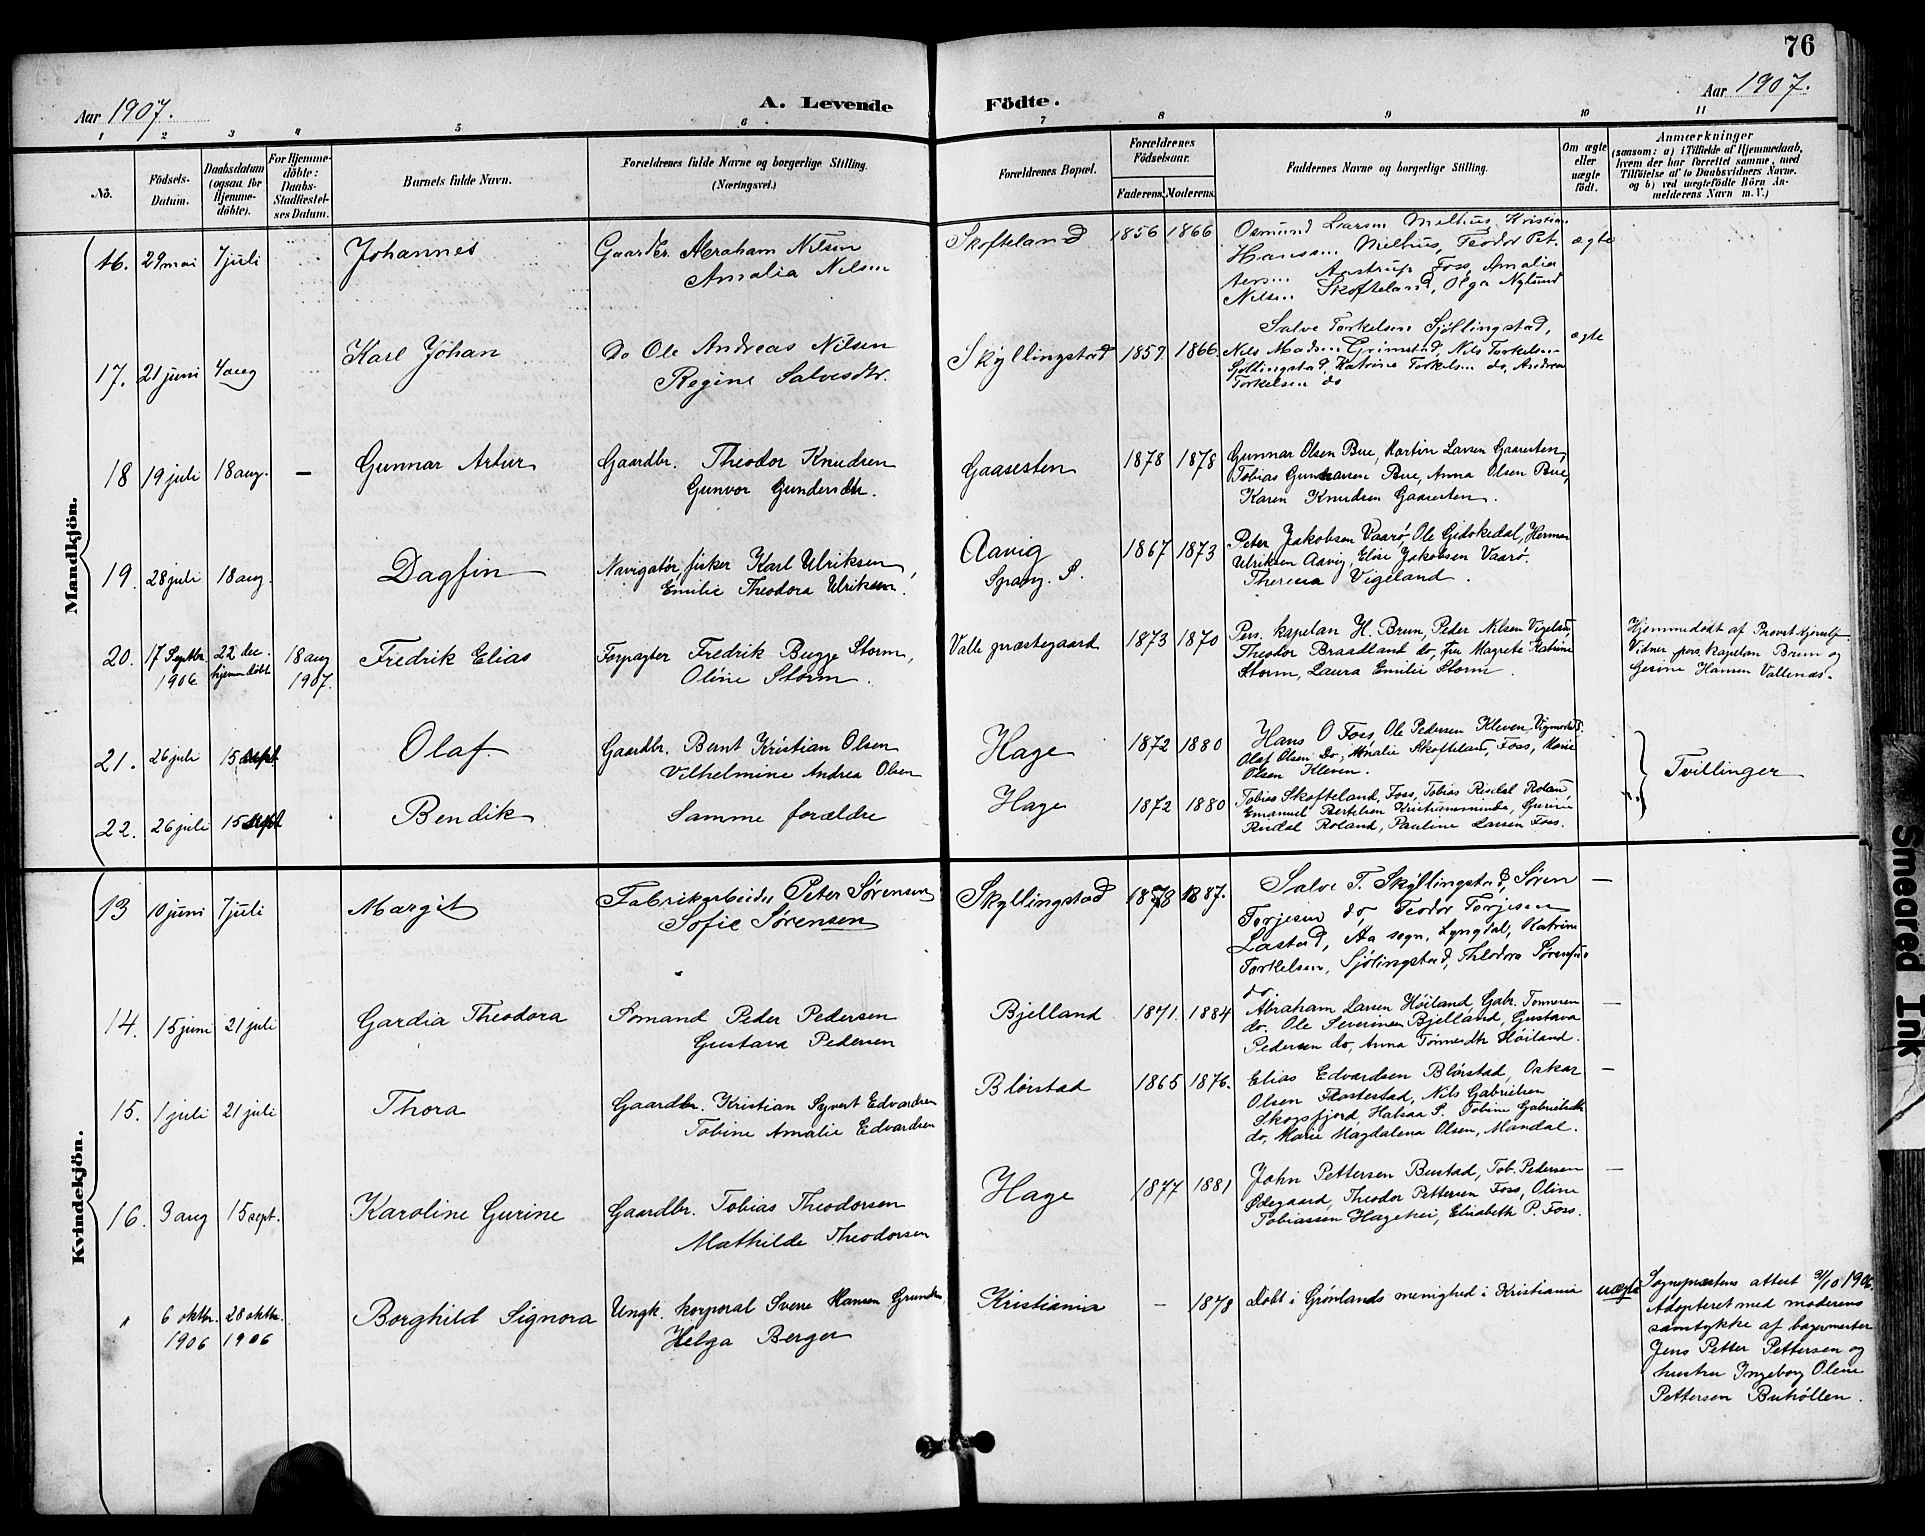 76
Aar 1907.
A. Levende Födte.
Aar 1907.
1 2 3 4 5 6 7 8 9 10 11
No.
Födsels-Datum.
Daabsdatum (ogsaa for Hjemmedöbte).
For Hjemmedöbte: Daabs-Stadfæstelses Datum.
Barnets fulde Navn.
Forældrenes fulde Navne og borgerlige Stilling.
(Næringsvei.)
Forældrenes Bopæl.
Forældrenes Födselsaar.
Faderens. Moderens.
Faddernes Navne og borgerlige Stilling.
Om ægte eller uægte födt.
Anmærkninger
(saasom: a) i Tilfælde af Hjemmedaab,
hvem der har forrettet samme, med
Tilföielse af to Daabsvidners Navne.
og b) ved uægtefödte Börn An-
melderens Navn m. V.)
Mandkjön.
16. 29 mai 7 juli Johannes
Gaardbr. Abraham Nilsen
Amalia Nilsen
Skofteland 1856 1866
Osmund Larsen Melhus, Kristian
Hansen Melhus, Teodor Pet.
tersen Aastrup Foss, Amalia
Nilsen Skofteland, Olga Nylund
ægte
17. 21 juni 4 aug Karl Johan
Do Ole Andreas Nilsen
Regine Salvesdtr.
Skyllingstad 1859 1866
Salve Torkelsen Sjöllingstad,
Nils Madsen Grimestad, Nils Torkelsen
Sjöllingstad, Katrine Torkelsen do, Andrea
Torkelsen do
ægte
18 19 juli 18 aug. — Gunnar Artur
Gaardbr. Theodor Knudsen
Gunvor Gundersdtr.
Gaasesten 1878 1878
Gunnar Olsen Bue, Martin Larsen Gaasesten,
Tobias Gunnarsen Bue, Anna Olsen Bue,
Karen Knudsen Gaasesten.
19. 28 juli 18 aug. Dagfin
Navigatør, fisker Karl Ulriksen,
Emilie Theodora Ulriksen.
Aavig
Spang. S.
1867 1873
Peter Jakobsen Vaarø, Ole Gidskedal, Herman
Ulriksen Aavig, Elise Jakobsen Vaarø.
Theresia Vigeland.
20. 17 Septbr. 1906 22 dec. hjemmedöbt 18 aug 1907. Fredrik Elias
Forpagter Fredrik Bugge Storm,
Oline Storm.
Valle præstegaard 1873 1870
Pers. kapelan H. Brun, Peder Nilsen Vigeland,
Theodor Braadland do, Fru Magrete Katrine
Storm, Laura Emilie Storm.
Hjemmedöbt af Provst Kjerulf
Vidner pers. kapelan Brun og
Gesine Hansen Vallenæs.
21. 26 juli 15 sept Olaf
Gaardbr. Bernt Kristian Olsen
Vilhelmine Andrea Olsen
Hage 1872 1880
Hans O Foss, Ole Pedersen Kleven, Vigmostad S.
Olaf Olsen Do, Amalie Skofteland, Foss, Marie
Olsen Kleven.
Tvillinger
22. 26 juli 15 sept Bendik
Samme forældre
Hage 1872 1880
Tobias Skofteland, Foss, Tobias Risdal Roland,
Emanuel Bertelsen Kristiansminde, Gurine
Risdal Roland, Pauline Larsen Foss.
Kvindekjön.
13 10 juni 7 juli Margit
Fabrikarbeider Peter Sørensen
Sofie Sørensen
Skyllingstad 1878 1887.
Salve T. Skyllingstad, Søren
Torjesen do, Teodor Torjesen
Lastad, Aa sogn. Lyngdal, Katrine
Torkelsen, Sjölingstad, Theodora Sørensen
do.
—
14. 15 juni 21 juli Gardia Theodora
Sømand Peder Pedersen
Gustava Pedersen
Bjelland 1871. 1884
Abraham Larsen Høiland Gabr. Tønnesen
do. Ole Severinsen Bjelland, Gustava
Pedersen do, Anna Tønnesdtr Høiland.
—
15. 1 juli 21 juli Thora
Gaardbr. Kristian Syvert Edvardsen
Tobine Amalie Edvardsen
Blørstad 1865 1876.
Elias Edvardsen Blørstad, Oskar
Olsen Fastestad, Nils Gabrielsen
Skogsfjord, Halsaa S. Tobine Gabrielsdtr
do, Marie Magdalena Olsen, Mandal.
—
16. 3 aug 15 sept. Karoline Gurine
Gaardbr. Tobias Theodorsen
Mathilde Theodorsen
Hage 1877 1881
John Pettersen Bustad, Tob. Pedersen
Ødegaard, Theodor Pettersen Foss, Oline
Tobiassen Hagehei, Elisabeth P. Foss.
—
" 6 oktbr. 1906 28 oktbr. 1906 Borghild Signora
Ungk. korporal Sverre Hansen
Helga Berger
Kristiania — 1878
Döbt i Grønlands menighed i Kristiania
uægte
Sognepræstens attest 31/10 1906.
Adopteret med moderens
samtykke af bagermester
Jens Petter Pettersen og
hustru Ingeborg Oline
Pettersen Buhöllen.
Smeared Ink